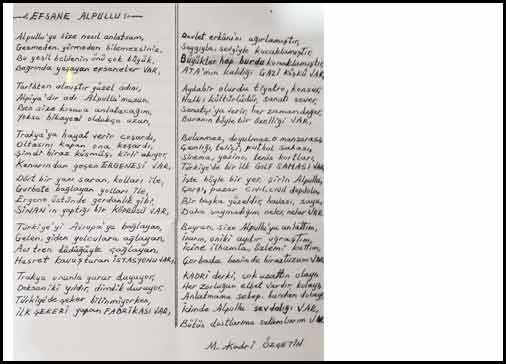 EFSANE ALPULLU
Alpullu'yu size nasıl anlatsam,
Gezmeden, görmeden bilemezsiniz,
Bu yeşil beldenin ünü çok büyük,
Bağrında yaşayan efsaneler VAR,
Tarihten almıştır güzel adını,
Alpiya'dır adı Alpullu'muzun.
Ben size kısaca anlatacağım,
Yoksa hikayesi oldukça uzun,
Trakya'ya hayat verir coşardı,
Oltasını kapan ona koşardı,
Şimdi biraz küsmüş, kirli akıyor,
Kenarından geçen ERGENESİ VAR,
Dört bir yanı saran, kolları ile,
Gurbete bağlayan yolları ile,
Ergene üstünde gerdanlık gibi,
SİNAN'ın yaptığı bir KÖPRÜSÜ VAR,
Türkiye'yi Avrupa'ya bağlayan,
Gelen, giden yolculara ağlayan
Acı tren düdüğüyle çağlayan,
Hasret kavuşturan İSTASYONU VAR,
Trakya onunla gurur duyuyor,
Doksan iki yıldır, dimdik duruyor,
Türkiye'de şeker bilinmiyorken,
İLK ŞEKERİ yapan FABRİKASI VAR,
Devlet erkânını ağırlamıştır,
Saygıyla, sevgiyle kucaklamıştır,
Büyükler hep burda konaklamıştır,
ATA'mın kaldığı GAZİ KÖŞKÜ VAR,
Aydabir olurdu tiyatro, konser,
Halkı kültürlüdür, sanatı sever,
Sanatçıya verir, her zaman değer,
Buranın böyle bir özelliği VAR,
Bulunmaz, doyulmaz o manzarası
Gençliği, tenisi, futbol sahası,
Sinema, gazino, tenis kortları,
Türkiye'de bir ilk GOLF SAHASI VAR
İşte böyle bir yer, şirin Alpullu,
Çarşı, pazar cıvıl cıvıl dopdolu,
Bir başka güzeldir, havası, suyu,
Daha saymadığım neler, neler VAR,
Buyrun, size Alpullu'yu anlattım,
on iki aydır uğraştım,
İçine ilhamla, özlemi kattım,
Çorbada benim de birazTuzum VAR,
KADRİ derki, çok uzattın olayı
Her zorluğun elbet vardır, kolayı
Anlatmama sebep, bundan dolayı
İçimde Alpullu sevdalığı VAR,
Bütün dostlarıma selamlarım VAR
M. Kadri ÖZÇETİN